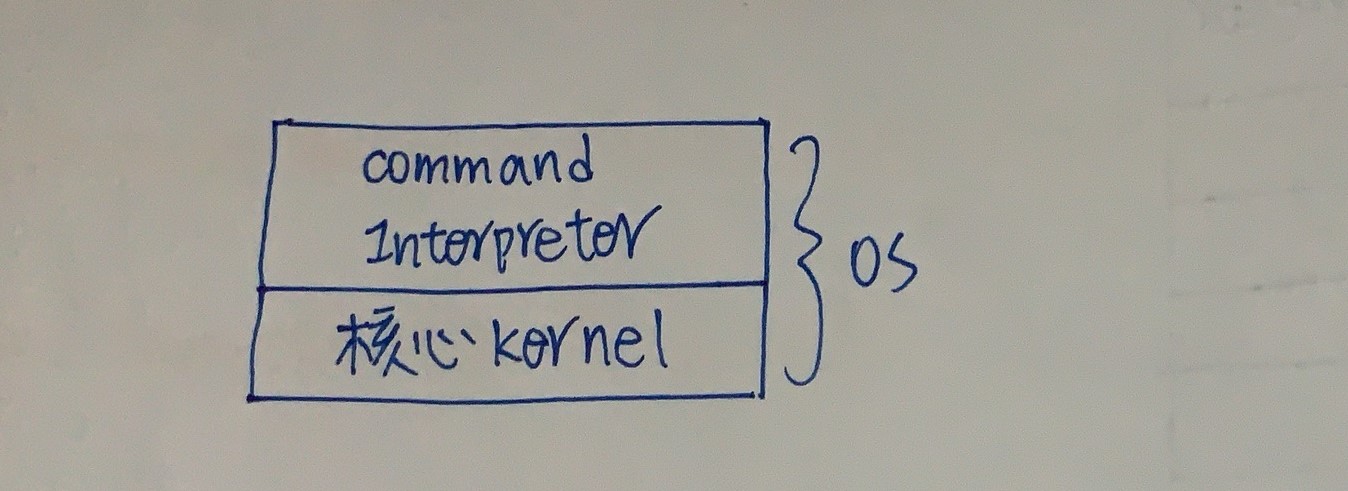 command
Interpreter
核心 kernel
OS